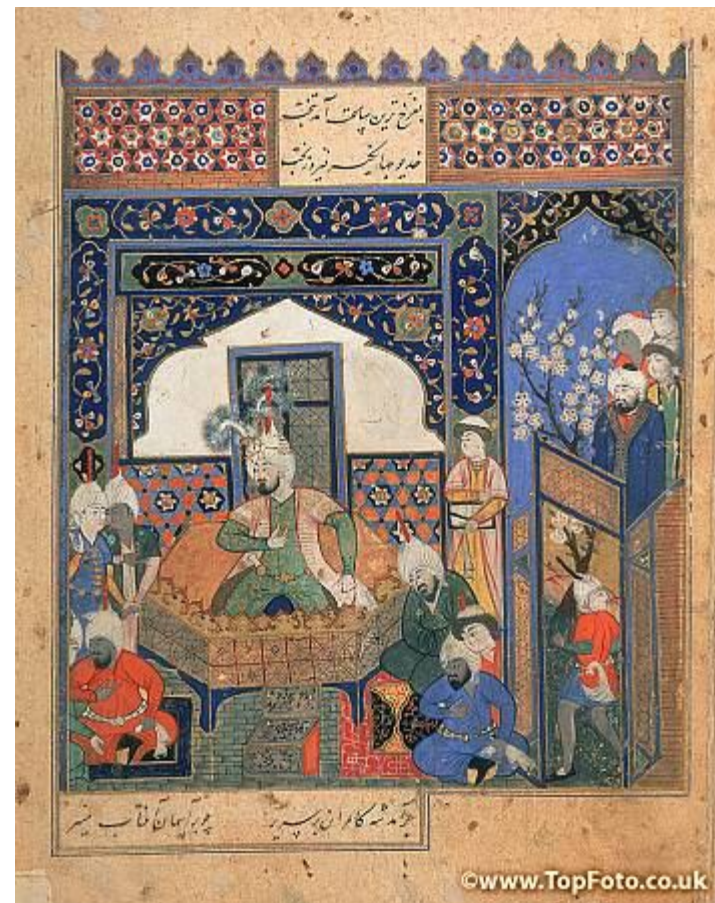 بفرخ ترین ساعت آمد بتخت
خدیو جهانگیر فیروز بخت
برآمد شه کامران بر سریر چو بر آسمان آفتاب منیر
©www.TopFoto.co.uk